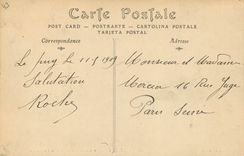 Carte Postale
POST CARD — POSTKARTE — CARTOLINA POSTALE
TARJETA POSTAL
Correspondance
Adresse
Le Puy le 11-5 1909
Salutation
Roche
Monsieur et Madame
Mercier 16 Rue
Paris Seine